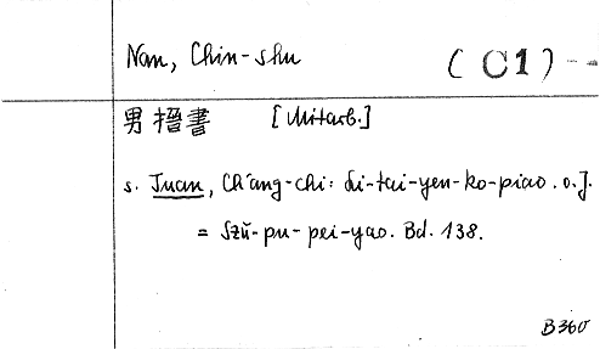 Nan, Chin-shu (C1)--
男搢書 [Mitarb.]
s. Tuan, Ch'ang-chi: Li-tai-yen-ko-piao. o.J.
= Szŭ-pu-pei-yao. Bd. 138.
B360